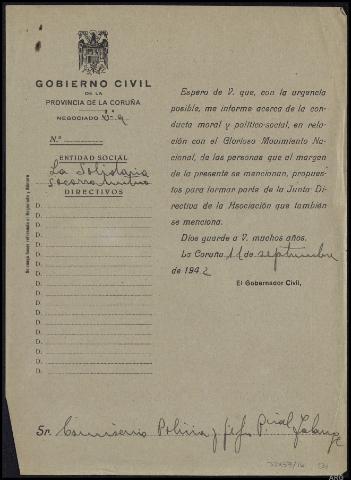 GOBIERNO CIVIL
DE LA
PROVINCIA DE LA CORUÑA
NEGOCIADO
N.º
ENTIDAD SOCIAL
La Solidaria
Socorro mutuo
DIRECTIVOS
D.
D.
D.
D.
D.
D.
D.
D.
D.
D.
D.
D.
D.
D.
D.
D.
Espero de V. que, con la urgencia
posible, me informe acerca de la con-
ducta moral y político-social, en rela-
ción con el Glorioso Movimiento Na-
cional, de las personas que al margen
de la presente se mencionan, propues-
tos para formar parte de la Junta Di-
rectiva de la Asociación que también
se menciona.
Dios guarde a V. muchos años.
La Coruña 11 de septiembre
de 1942
El Gobernador Civil,
Sr. Comisario Policia y Jefe